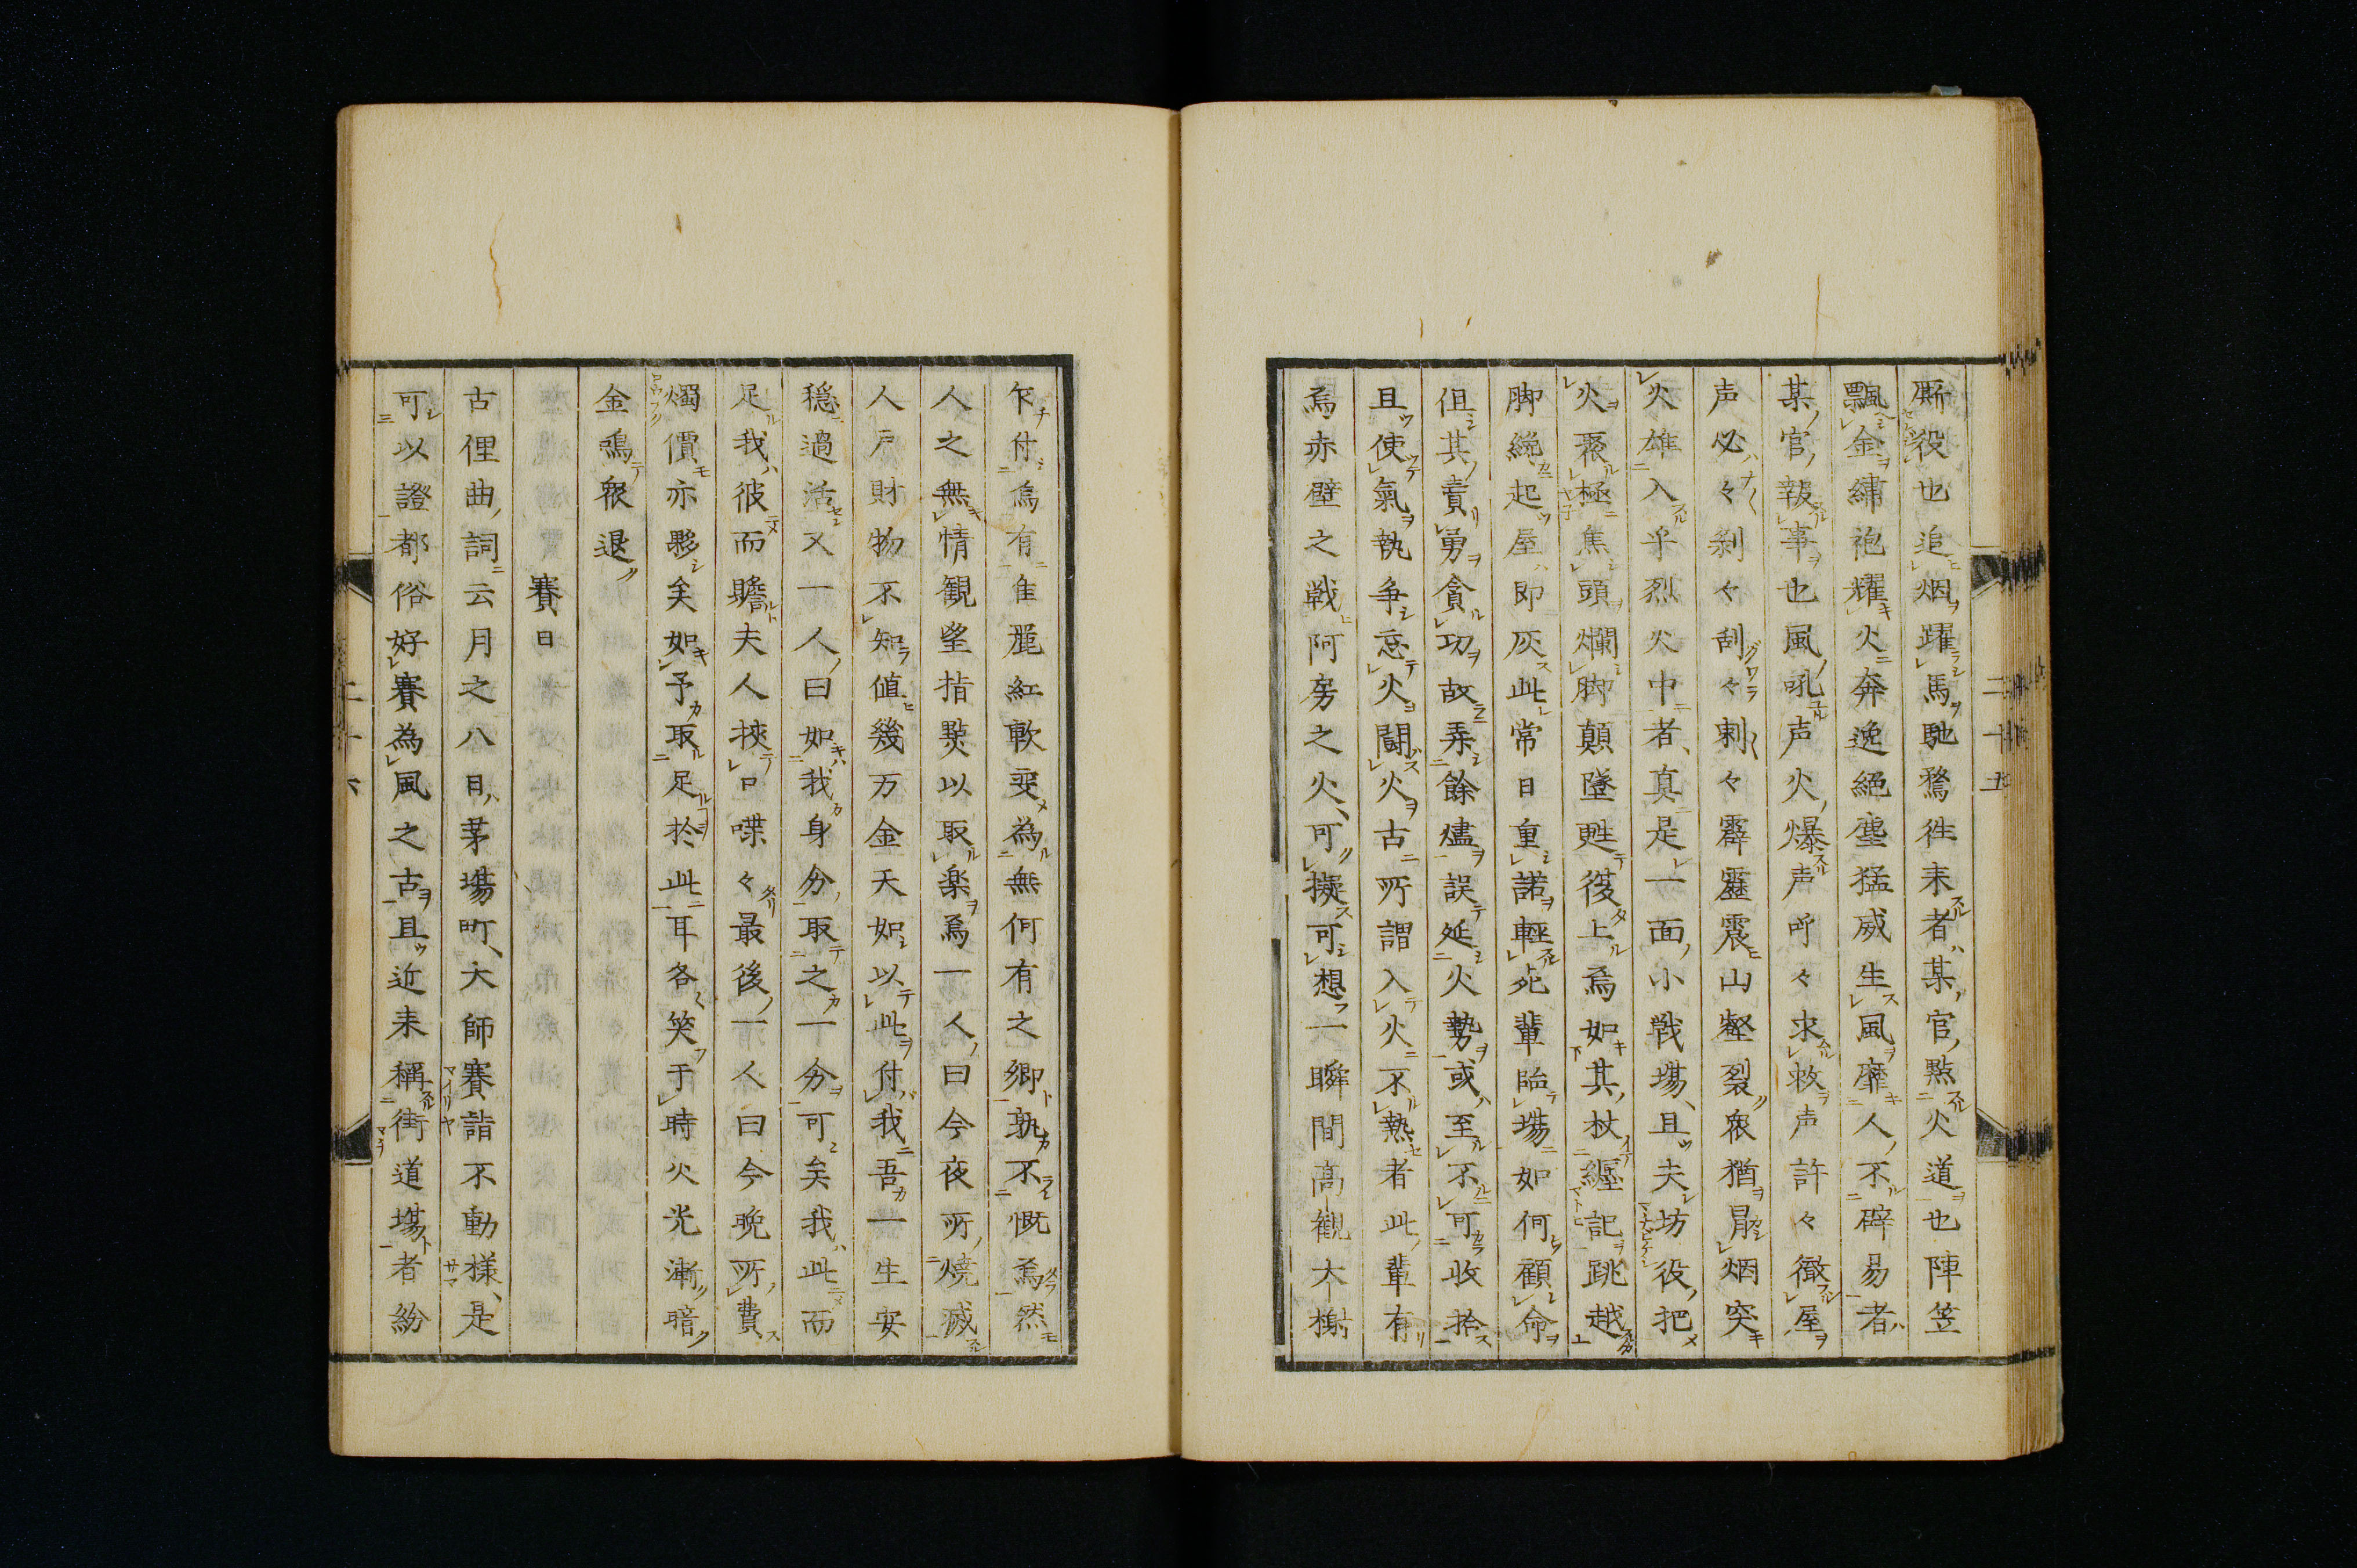 厮役也追烟躍馬馳騖徃来者某官點火道也陣笠
飄金繍袍耀火奔逸絕塵猛威生風靡人不辟易者
某官報事也風吼声火爆声呼々求救声許々徹屋
声必々剝々刮々剌々霹靂震山壑裂衆猶冒烟突
火雄入乎烈火中者真是一面小戦場且夫坊役把
火褻極焦頭爛脚顛墜甦復上焉如其杖纒記跳越
脚纔起屋即灰此常日重諾軽死輩臨場如何顧命
但其賣勇貪功故弄餘燼誤延火勢或至不可收拾
且使氣執争忘火鬪火古所謂入火不熱者此輩有
焉赤壁之戦阿房之火可擬可想一瞬間髙観大榭
二十五
乍付烏有隹麗紅軟変為無何有之郷孰不慨焉然
人之無情観望指㸃以取楽焉一人曰今夜所燒滅
人戸財物不知値幾万金天如以此付我吾一生安
穏過活又一人曰如我身分取之一分可矣我此而
足我彼而贍夫人挾口喋々最後一人曰今晩所費
燭價亦夥矣如予取足於此耳各笑于時火光漸暗
金鳴衆退
賽日
古俚曲詞云月之八日茅場町大師賽詣不動様是
可以證都俗好賽為風之古且近来稱街道場者紛
二十六